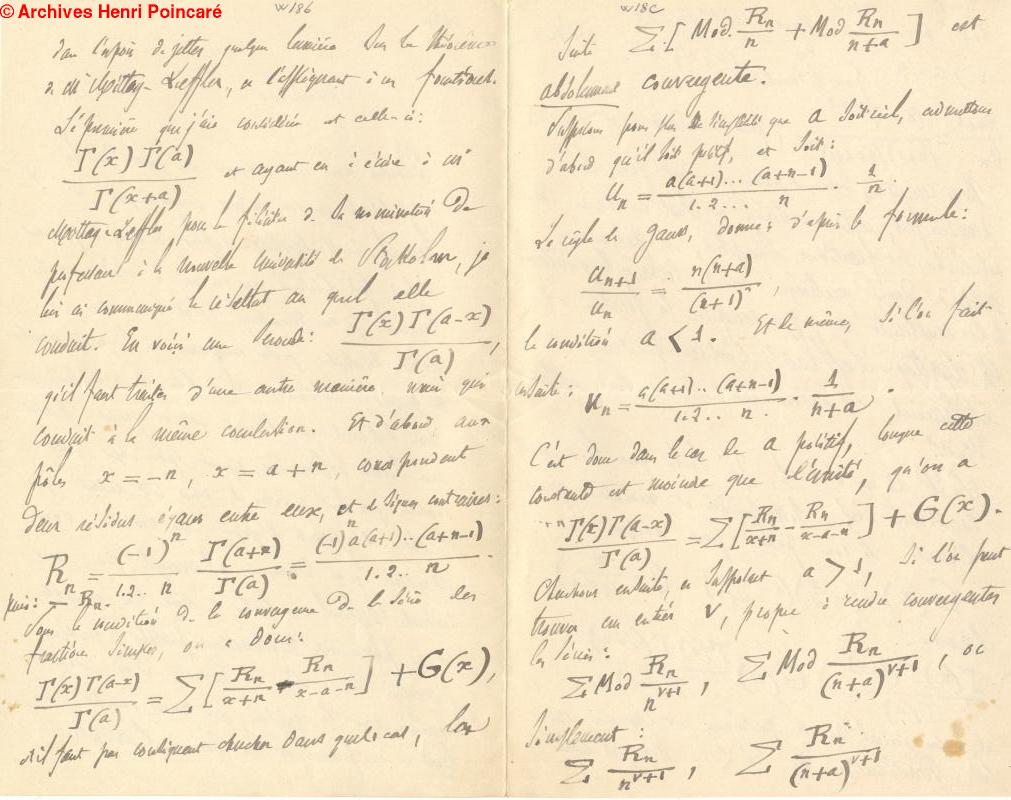 © Archives Henri Poincaré
W18b
dans l'espoir de jetter quelque lumière sur le théorème
de Mr Mittag-Leffler, en l'appliquant à ces fonctions.
La première que j'aie considérée est celle-ci:
Γ(x)Γ(a) / Γ(x+a) et ayant eu à écrire à Mr
Mittag-Leffler pour le féliciter de sa nomination de
professeur à la nouvelle Université de Stokholm, je
lui ai communiqué le résultat au quel elle
conduit. En voici une seconde: Γ(x)Γ(a-x) / Γ(a),
qu'il faut traiter d'une autre manière mais qui
conduit à la même conclusion. Et d'abord aux
pôles x = -n, x = a + n, correspondent
deux résidus égaux entre eux, et de signes contraires:
R_n = (-1)^n / 1.2.. n Γ(a+n) / Γ(a) = (-1)^n a(a+1)..(a+n-1) / 1.2.. n.
puis: - R_n.
Sous la condition de la convergence de la série des
fractions simples, on a donc:
Γ(x)Γ(a-x) / Γ(a) = Σ[R_n / x+n - R_n / x-a-n] + G(x),
et il faut par conséquent chercher dans quel cas, la
W18C
suite Σ[Mod. R_n / n + Mod R_n / n+a] est
absolument convergente.
Supposons pour plus de simplicité que a soit réel, admettons
d'abord qu'il soit positif, et soit:
u_n = a(a+1)... (a+n-1) / 1.2... n . 1 / n.
La règle de Gauss, donne d'après la formule:
u_{n+1} / u_n = n(n+a) / (n+1)^2,
la condition a < 1. Et de même, si l'on fait
ensuite: u_n = a(a+1)..(a+n-1) / 1.2.. n. . 1 / n+a.
C'est donc dans le cas de a positif, lorsque cette
constante est moindre que l'unité, qu'on a
Γ(x)Γ(a-x) / Γ(a) = Σ[R_n / x+n - R_n / x-a-n] + G(x).
Cherchons ensuite, en supposant a > 1, si l'on peut
trouver un entier ν, propre à rendre convergentes
les séries:
Σ Mod R_n / n^{ν+1}, Σ Mod R_n / (n+a)^{ν+1}, ou
simplement:
Σ R_n / n^{ν+1}, Σ R_n / (n+a)^{ν+1}